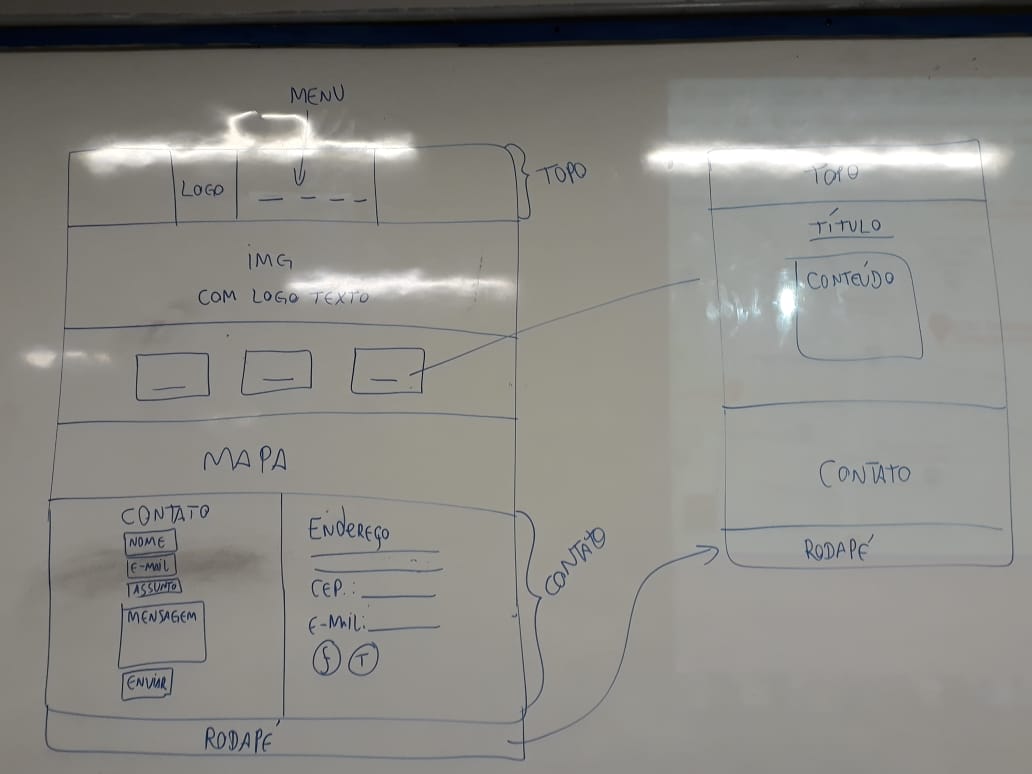 MENU
LOGO
TOPO
IMG
COM LOGO TEXTO
MAPA
CONTATO
NOME
E-MAIL
ASSUNTO
MENSAGEM
ENVIAR
ENDEREÇO
CEP.:
E-MAIL:
f T
CONTATO
RODAPÉ
TOPO
TÍTULO
CONTEÚDO
CONTATO
RODAPÉ